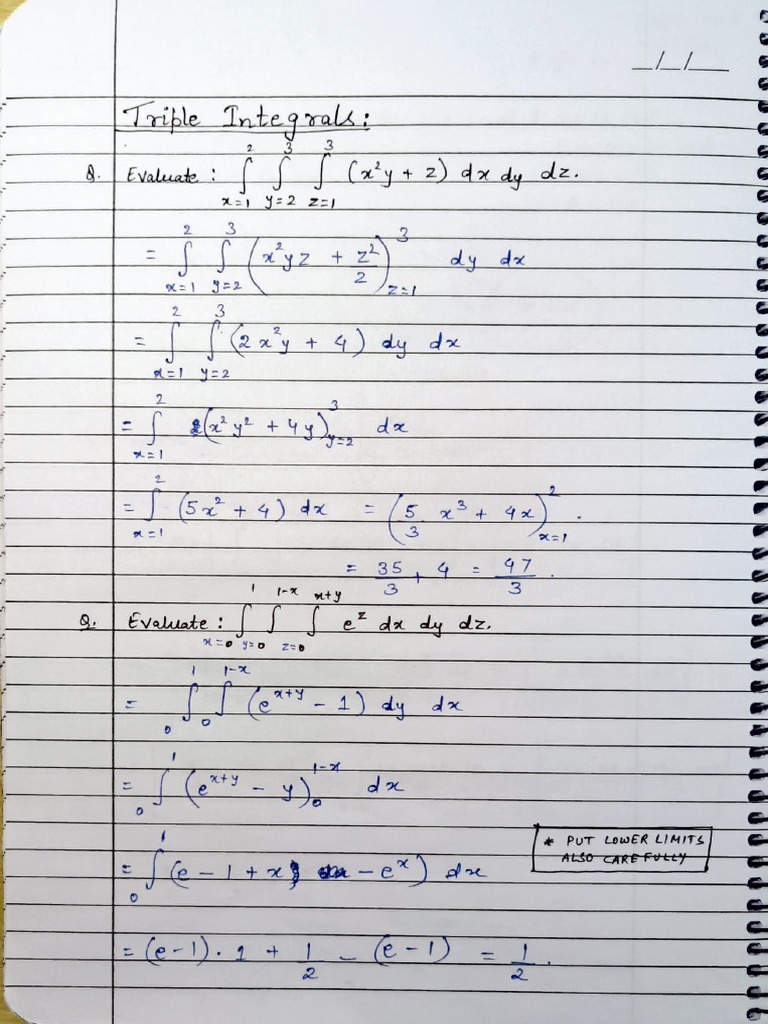 _/_/__
Triple Integrals:
Q. Evaluate: ∫_{x=1}^{2} ∫_{y=2}^{3} ∫_{z=1}^{3} (x²y + z) dx dy dz.
= ∫_{x=1}^{2} ∫_{y=2}^{3} (x²yz + z²/2)_{z=1}^{3} dy dx
= ∫_{x=1}^{2} ∫_{y=2}^{3} (2x²y + 4) dy dx
= ∫_{x=1}^{2} (x²y² + 4y)_{y=2}^{3} dx
= ∫_{x=1}^{2} (5x² + 4) dx = (5/3 x³ + 4x)_{x=1}^{2}.
= 35/3 + 4 = 47/3.
Q. Evaluate: ∫_{x=0}^{1} ∫_{y=0}^{1-x} ∫_{z=0}^{x+y} e^z dx dy dz.
= ∫_{0}^{1} ∫_{0}^{1-x} (e^{x+y} - 1) dy dx
= ∫_{0}^{1} (e^{x+y} - y)_{0}^{1-x} dx
* PUT LOWER LIMITS
ALSO CAREFULLY
= ∫_{0}^{1} (e - 1 + x - e^x) dx
= (e-1)·1 + 1/2 - (e-1) = 1/2.